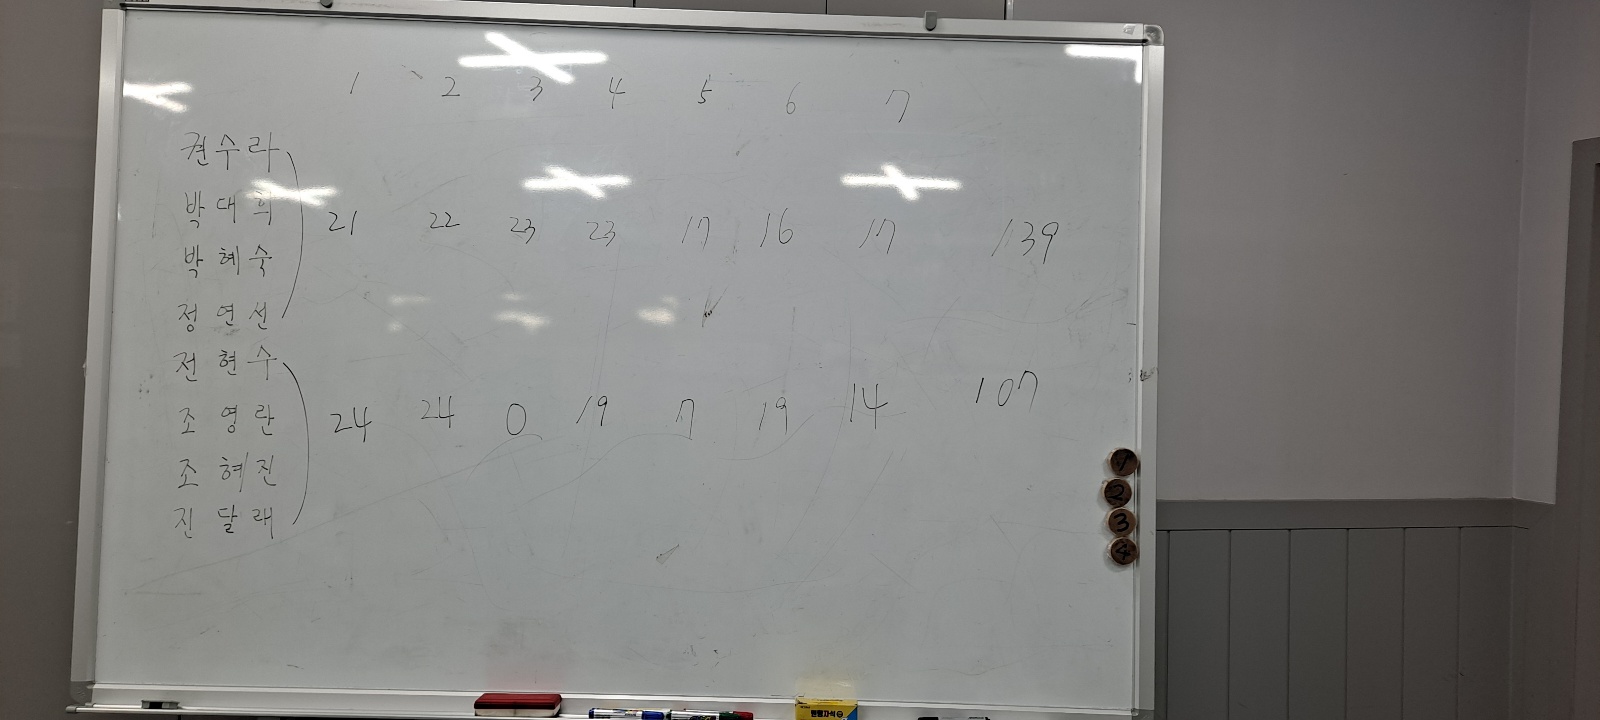 1 2 3 4 5 6 7
권수라
박대희
21 22 23 23 17 16 17 139
박혜숙
정연선
전현수
조영란
24 24 0 19 7 19 14 107
조혜진
진달래
1
2
3
4
원형자석